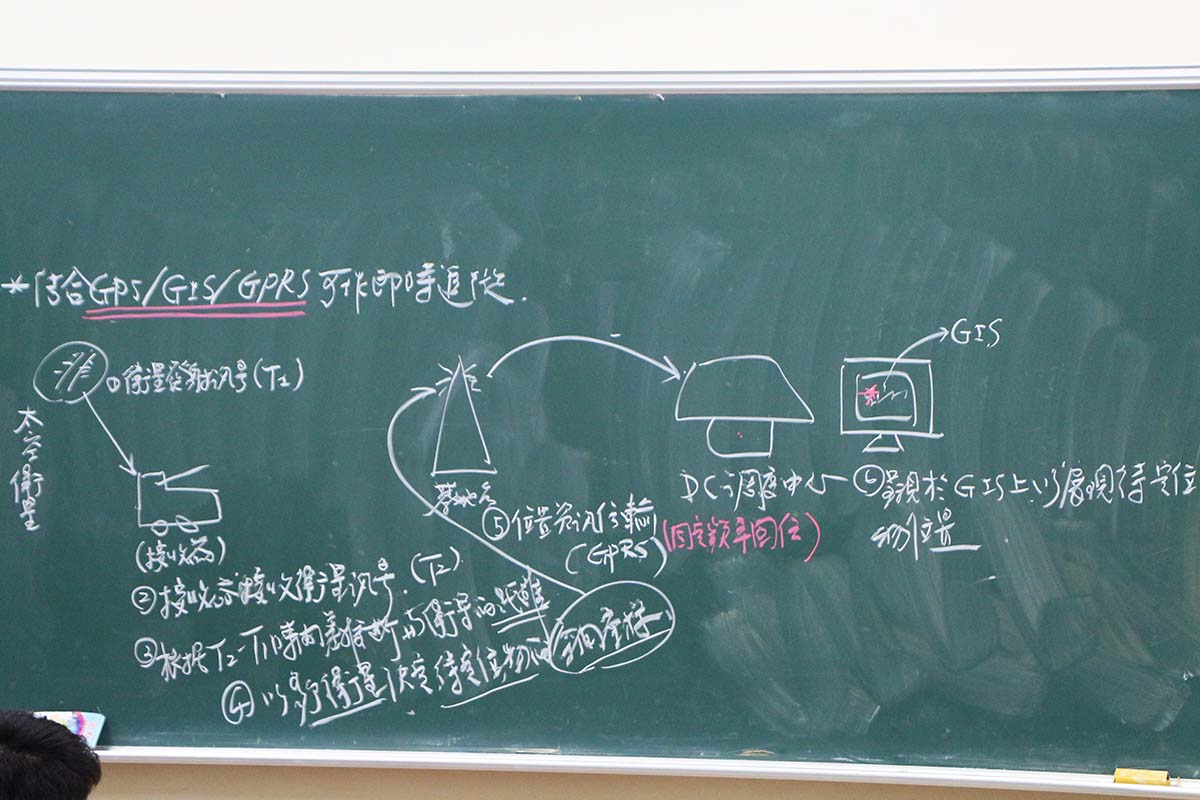 *結合GPS/GIS/GPRS可作即時追蹤.
①衛星發射訊号(T₁)
太空衛星
(接收器)
②接收器接收衛星訊号.(T₂)
③根據T₂-T₁時間差推斷與衛星的距離
④以多行衛星決定待定位物的空間座標
基地台
⑤位置資訊傳輸
(GPRS)
DC調度中心
(固定頻率回位)
GIS
⑥呈現於GIS上以展現待定位
物位置